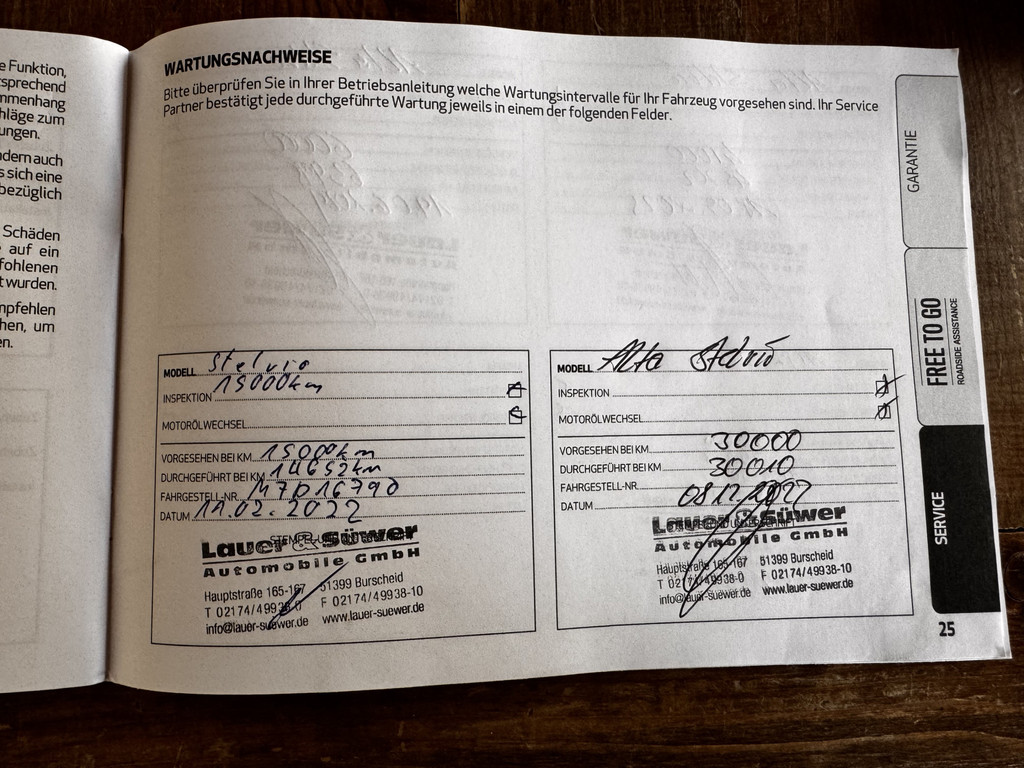 e Funktion,
sprechend
mmenhang
hläge zum
ungen.
ndern auch
s sich eine
bezüglich
Schäden
auf ein
fohlenen
t wurden.
mpfehlen
hen, um
en.
WARTUNGSNACHWEISE
Bitte überprüfen Sie in Ihrer Betriebsanleitung welche Wartungsintervalle für Ihr Fahrzeug vorgesehen sind. Ihr Service
Partner bestätigt jede durchgeführte Wartung jeweils in einem der folgenden Felder.
MODELL Stelvio
15000km
INSPEKTION
MOTORÖLWECHSEL
VORGESEHEN BEI KM 15000km
DURCHGEFÜHRT BEI KM 14652km
FAHRGESTELL-NR. M7D16790
DATUM 11.02.2022
Lauer & Süwer
Automobile GmbH
Hauptstraße 165-167 51399 Burscheid
T 02174/49938-0 F 02174/49938-10
info@lauer-suewer.de www.lauer-suewer.de
MODELL Alfa Stelvio
INSPEKTION
MOTORÖLWECHSEL
VORGESEHEN BEI KM 30000
DURCHGEFÜHRT BEI KM 30010
FAHRGESTELL-NR.
DATUM 08.12.2022
Lauer & Süwer
Automobile GmbH
Hauptstraße 165-167 51399 Burscheid
T 02174/49938-0 F 02174/49938-10
info@lauer-suewer.de www.lauer-suewer.de
GARANTIE
FREE TO GO
ROADSIDE ASSISTANCE
SERVICE
25